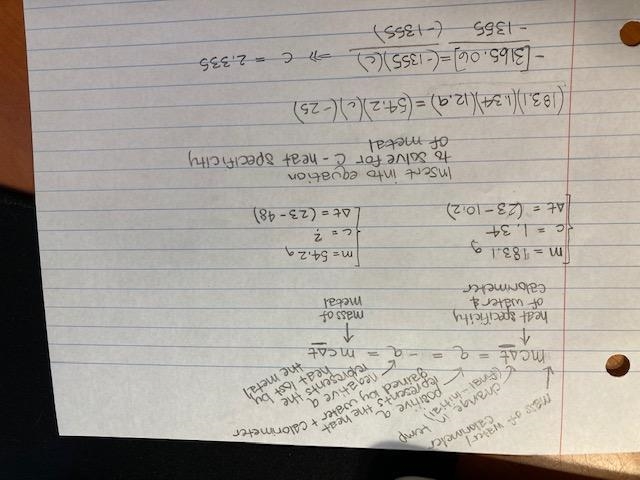 mass of water/
calorimeter
change in temp
(final - initial)
positive q
represents the heat
gained by water + calorimeter
negative q
represents the
heat lost by
the metal
mcΔt = q = -q = mcΔt
heat specificity
of water &
calorimeter
mass of
metal
m = 183.1 g
c = 1.34
Δt = (23-10.2)
m = 54.2 g
c = ?
Δt = (23-48)
Insert into equation
to solve for C - heat specificity
of metal
(183.1)(1.34)(12.9) = (54.2)(c)(-25)
-[3165.06] = (-1355)(c) => c = 2.335
-1355 (-1355)